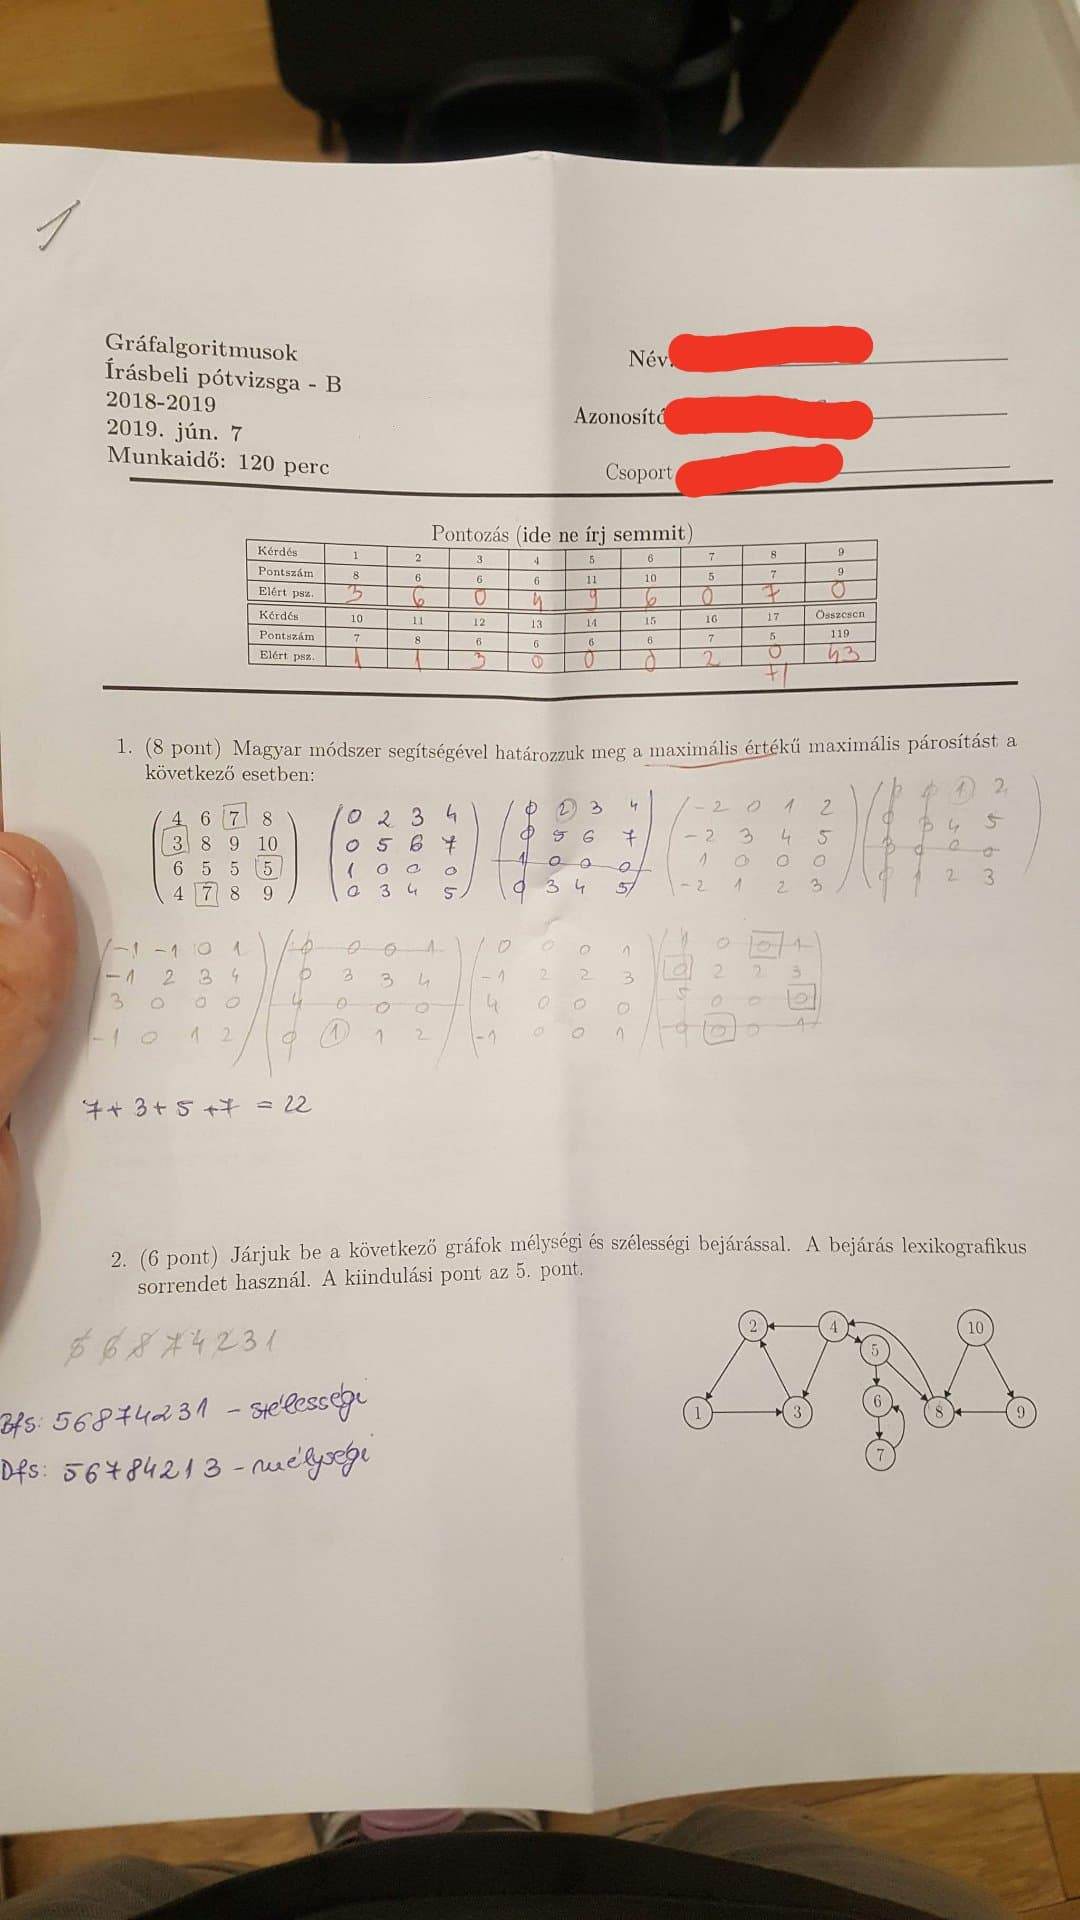 1
Gráfalgoritmusok
Írásbeli pótvizsga - B
2018-2019
2019. jún. 7
Munkaidő: 120 perc
Név:
Azonosító
Csoport
Pontozás (ide ne írj semmit)
Kérdés 1 2 3 4 5 6 7 8 9
Pontszám 8 6 6 6 11 10 5 7 9
Elért psz. 3 6 0 4 9 6 0 7 0
Kérdés 10 11 12 13 14 15 16 17 Összesen
Pontszám 7 8 6 6 6 6 7 5 119
Elért psz. 1 1 3 0 0 0 2 0 43
+1
1. (8 pont) Magyar módszer segítségével határozzuk meg a maximális értékű maximális párosítást a
következő esetben:
4 6 7 8 0 2 3 4 0 2 3 4 -2 0 1 2 0 0 1 2
3 8 9 10 0 5 6 7 0 5 6 7 -2 3 4 5 0 3 4 5
6 5 5 5 1 0 0 0 1 0 0 0 1 0 0 0 3 0 0 0
4 7 8 9 0 3 4 5 0 3 4 5 -2 1 2 3 0 1 2 3
-1 -1 0 1 0 0 0 1 0 0 0 1 1 0 0 1
-1 2 3 4 0 3 3 4 -1 2 2 3 0 2 2 3
3 0 0 0 4 0 0 0 4 0 0 0 5 0 0 0
-1 0 1 2 0 1 1 2 -1 0 0 1 0 0 0 1
7+3+5+7 = 22
2. (6 pont) Járjuk be a következő gráfok mélységi és szélességi bejárással. A bejárás lexikografikus
sorrendet használ. A kiindulási pont az 5. pont.
5 6 8 7 4 2 3 1
Bfs: 56874231 - szélességi
Dfs: 56784213 - mélységi
2 4 10
5
6
1 3 8 9
7